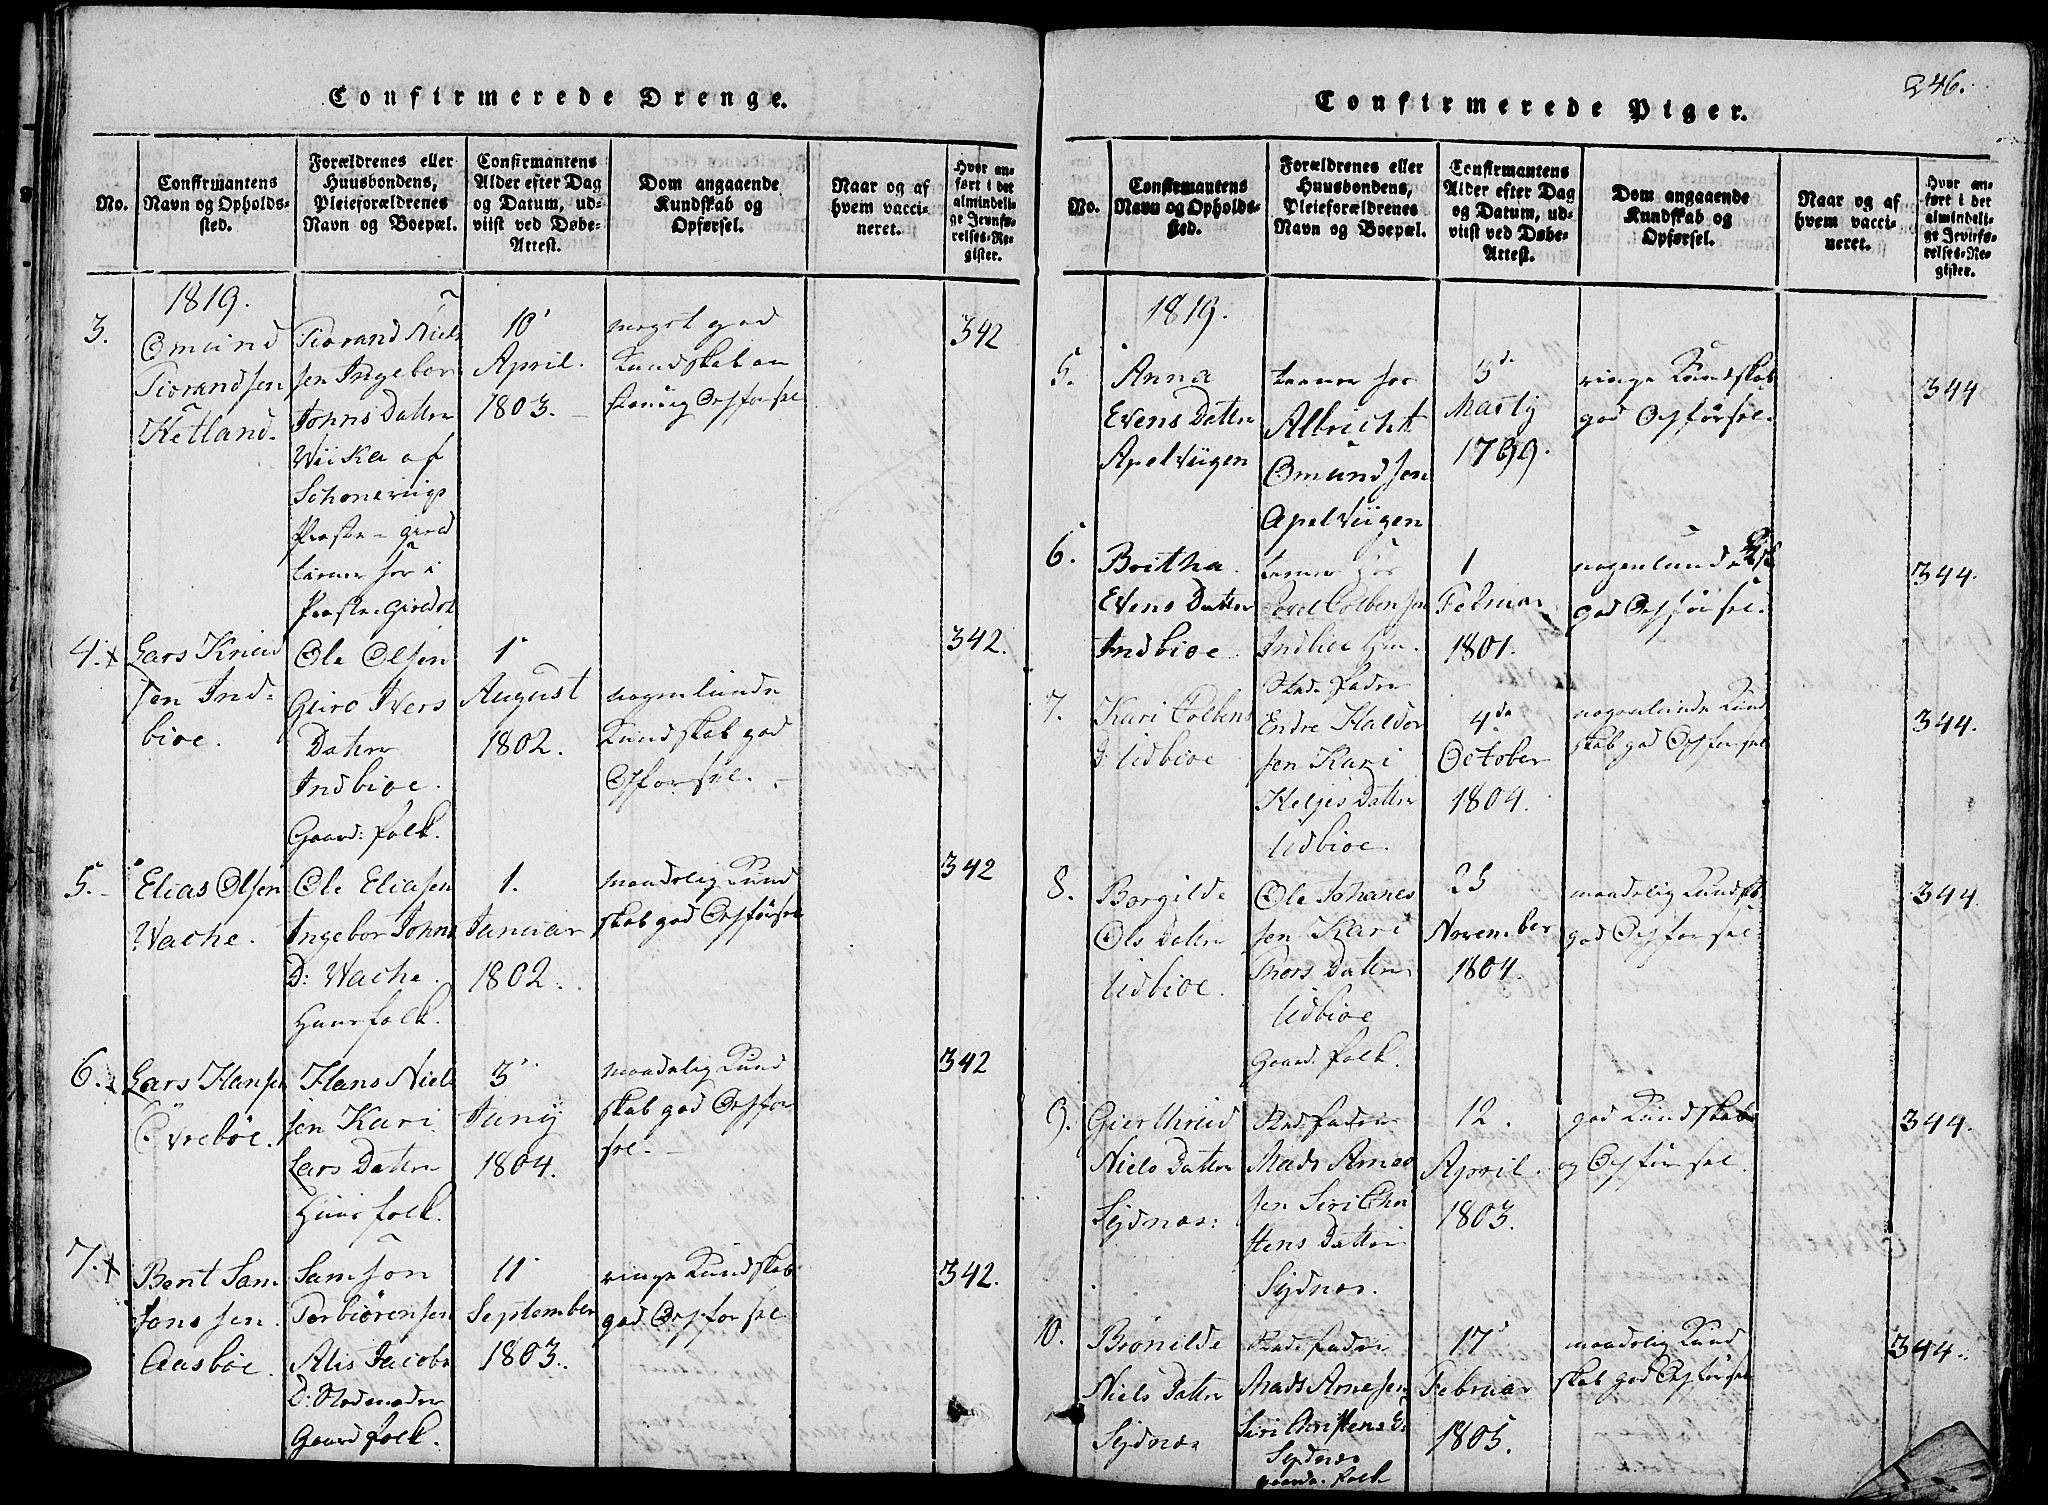 246.
Confirmerede Drenge.
No.
Confirmantens Navn og Opholdssted.
Forældrenes eller Huusbondens, Pleieforældrenes Navn og Boepæl.
Confirmantens Alder efter Dag og Datum, udviist ved Døbe-Attest.
Dom angaaende Kundskab og Opførsel.
Naar og af hvem vaccineret.
Hvor anført i det almindelige Jevnførelses-Register.
1819.
3.
Omund
Tiorandsen
Ketland.
Tiorand Niels
sen Ingebor
Johns Datter
Wiika af
Schonevigs
Præste-gield
tiener her i
Præste-Gieldet
10
April.
1803.
meget god
Kundskab an
stændig Opførsel
342
4. x
Lars Knud
sen Ind-
bioe.
Ole Olsen
Guro Ivers
Datter
Indbioe.
Gaard: folk.
1
August
1802.
nogenlunde
Kundskab god
Opførsel.
342.
5.
Elias Olsen
Wache.
Ole Eliasen
Ingebor Johns
D: Wache.
Huusfolk.
1.
Januar
1802.
maadelig Kund
skab god Opførsel
342
6.
Lars Hansen
Øvrebøe.
Hans Niels
sen Kari
Lars Datter
Huusfolk.
3
Juny
1804.
maadelig Kund
skab god Opfør
sel.
342
7. x
Bent Sam
sonssen.
Aasbøe.
Samson
Torbiørensen
Alis Jacobs
D: Stedmoder
Gaardfolk.
11
September
1803.
ringe Kundskab
god Opførsel
342.
Confirmerede Piger.
No.
Confirmantens Navn og Opholdssted.
Forældrenes eller Huusbondens, Pleieforældrenes Navn og Boepæl.
Confirmantens Alder efter Dag og Datum, udviist ved Døbe-Attest.
Dom angaaende Kundskab og Opførsel.
Naar og af hvem vaccineret.
Hvor anført i det almindelige Jevnførelses-Register.
1819.
5.
Anna
Evens Datter
Apelviigen
tiener hos
Albricht
Omundsen
Apelviigen
3de
Marty
1799.
ringe Kundskab
god Opførsel.
344
6.
Britha
Evens Datter
Indbioe.
tiener hos
Colbensen
Indbioe
Stedfader
1
Februar
1801.
nogenlund
god Opførsel.
344.
7.
Kari Colbens
D: Udbioe
Endre Haldor
sen Kari
Heljes Datter
Udbioe.
4de
October
1804.
nogenlunde Kund
skab god Opførsel
344.
8.
Borgilde
Ols Datter
Udbioe.
Ole Johanes
sen Kari
Thors Datter
Udbioe
Gaard: folk.
25
November
1804.
maadelig Kundsk
god Opførsel
344.
9.
Gierthrud
Niels Datter
Sydnæs:
Stedfader
Mads Arne
sen Siri Chri
stens Datter
Sydnæs.
12.
April.
1803.
god Kundskab
og Opførsel.
344.
10.
Brønilde
Niels Datter
Sydnæs
Stedfader
Mads Arnesen
Siri Christens D:
Sydnæs
gaards folk
17
Februar
1805.
maadelig Kund
skab god Opførsel
344.